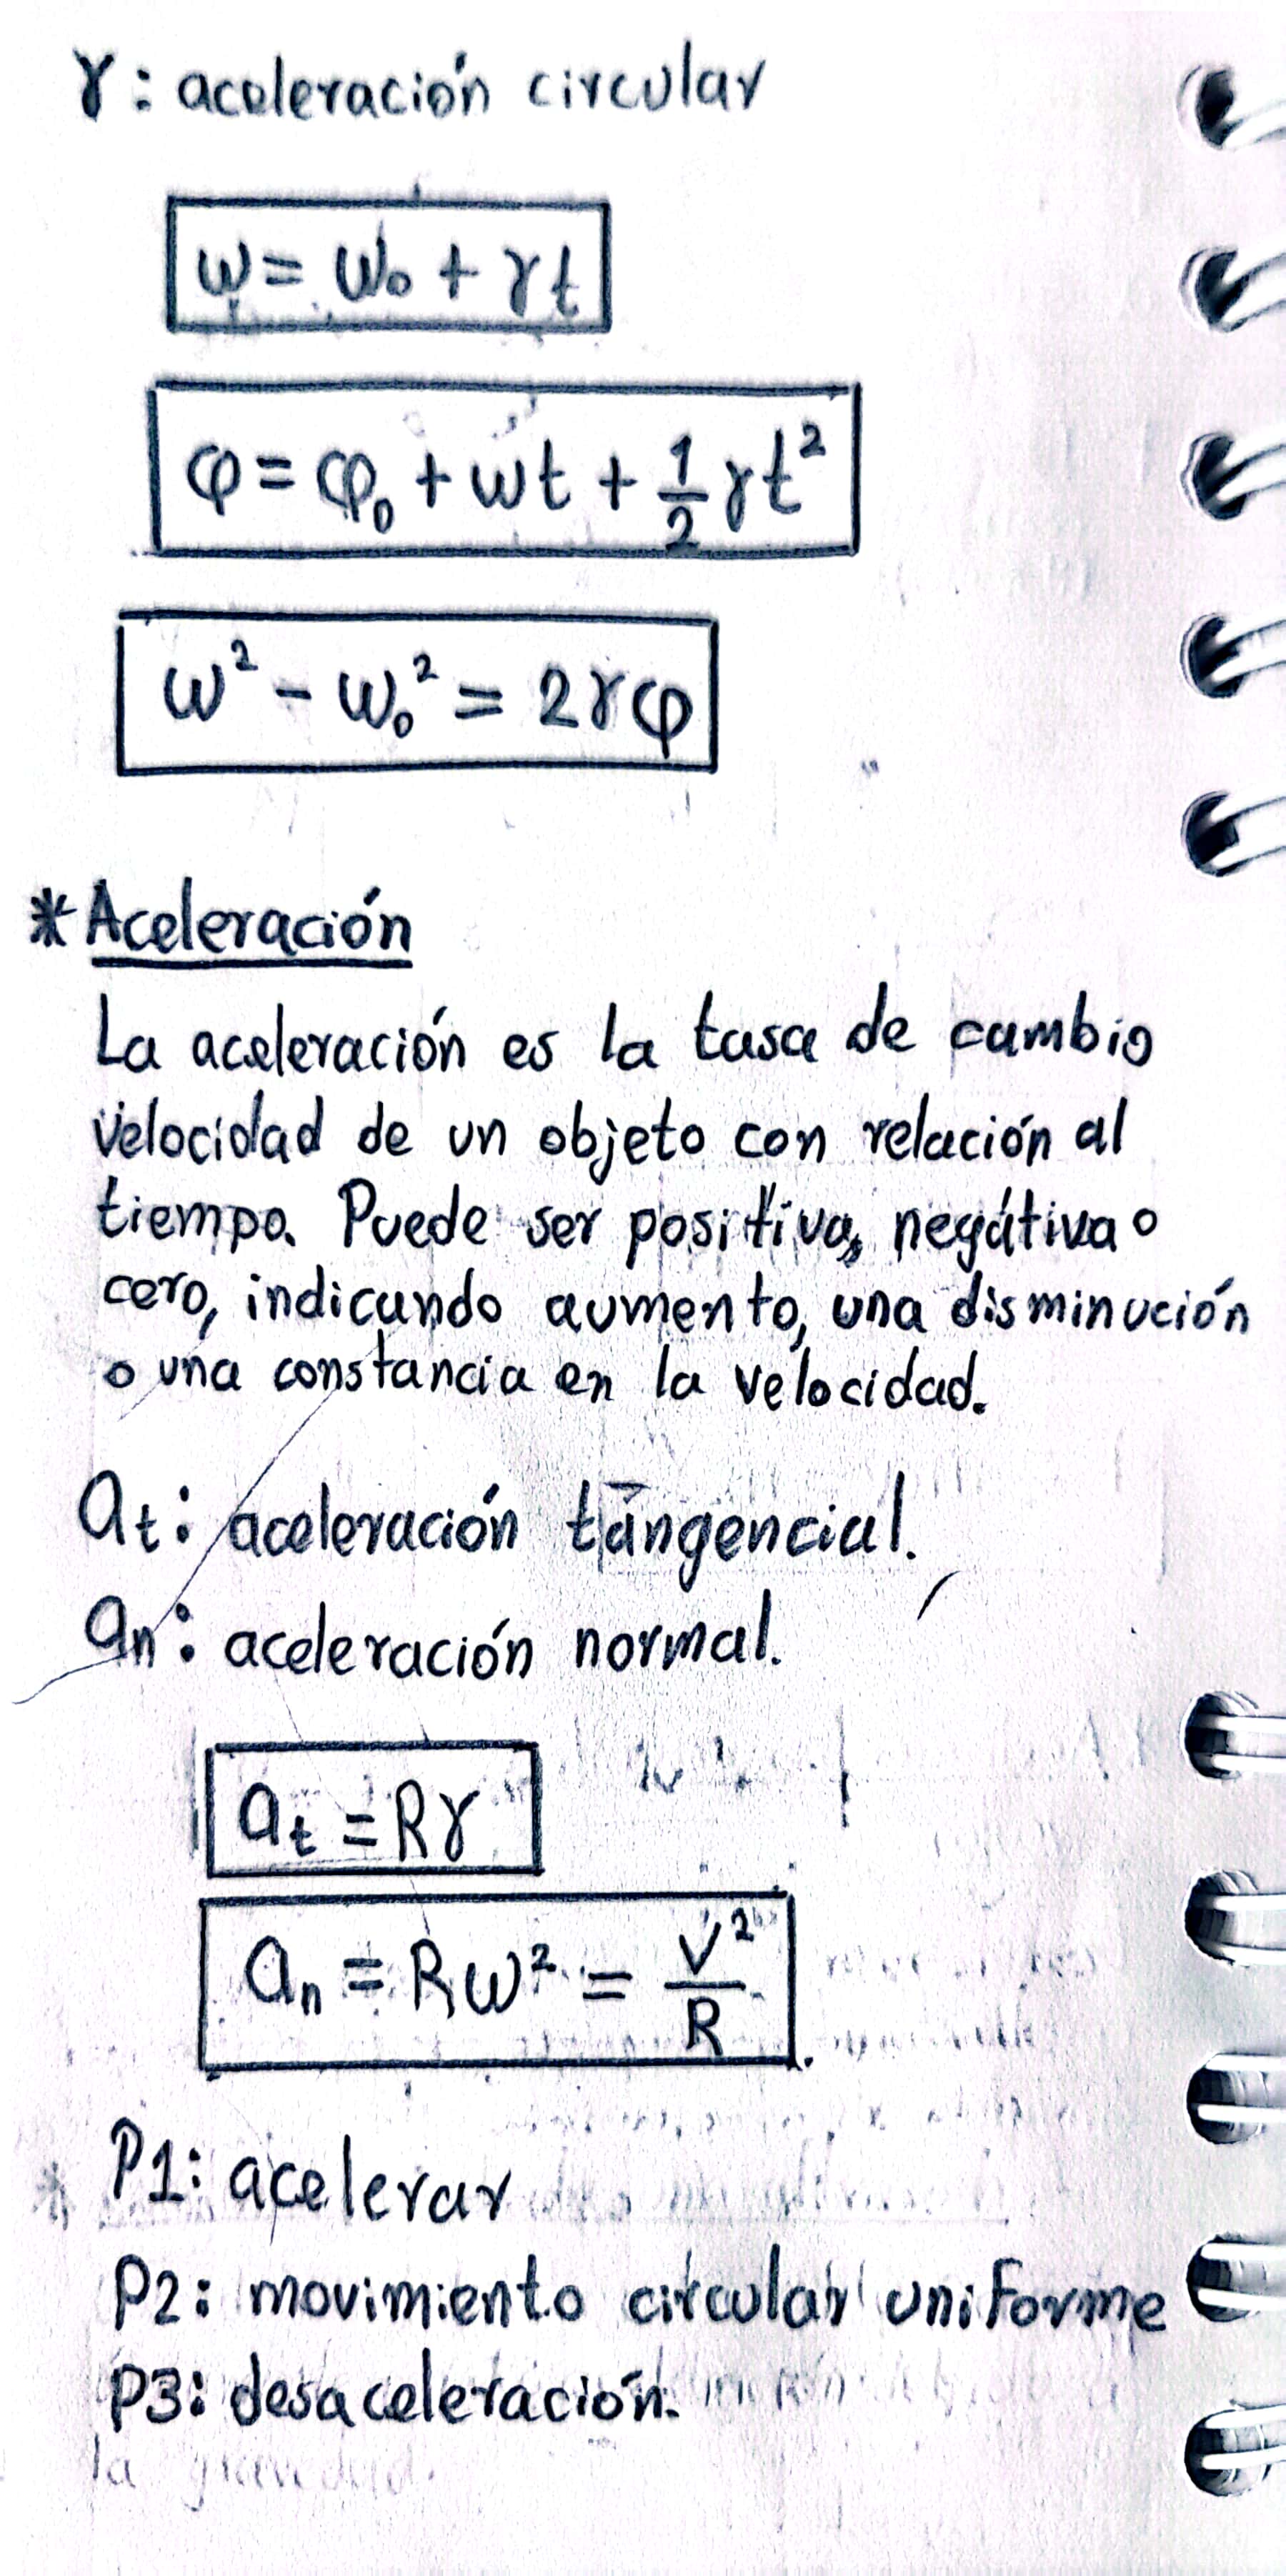 γ: aceleración circular
ω = ω₀ + γt
φ = φ₀ + ωt + 1/2 γt²
ω² - ω₀² = 2γφ
* Aceleración
La aceleración es la tasa de cambio
velocidad de un objeto con relación al
tiempo. Puede ser positiva, negativa o
cero, indicando aumento, una disminución
o una constancia en la velocidad.
at: aceleración tangencial.
an: aceleración normal.
at = Rγ
an = Rω² = V²/R
P1: acelerar
P2: movimiento circular uniforme
P3: desaceleración.